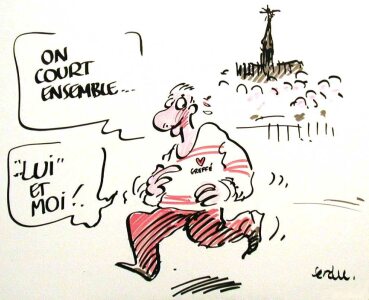 ON
COURT
ENSEMBLE...
"LUI"
ET
MOI!.
GREFFÉ
Serdu.